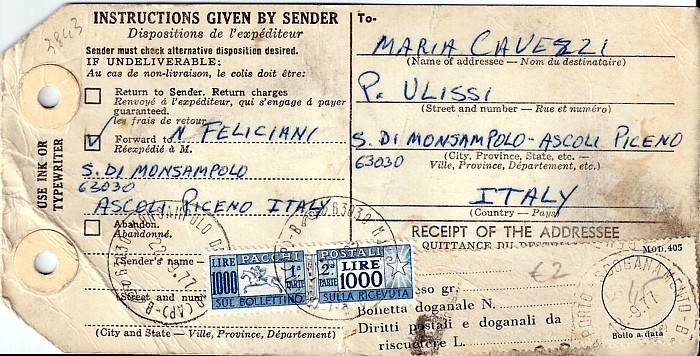 3843
INSTRUCTIONS GIVEN BY SENDER
Dispositions de l'expéditeur
Sender must check alternative disposition desired.
IF UNDELIVERABLE:
Au cas de non-livraison, le colis doit être:
Return to Sender. Return charges
Renvoyé à l'expéditeur, qui s'engage à payer
guaranteed.
les frais de retour
Forward to N FELICIANI
Réexpédié à M.
S. DI MONSAMPOLO
63030
ASCOLI PICENO ITALY
Abandon.
Abandonné.
(Sender's name
(Street and num
(City and State — Ville, Province, Département)
USE INK OR
TYPEWRITER
To-
MARIA CAVEZZI
(Name of addressee — Nom du destinataire)
P. ULISSI
(Street and number — Rue et numéro)
S. DI MONSAMPOLO - ASCOLI PICENO
63030
(City, Province, State, etc. —
Ville, Province, Département, etc.)
ITALY
(Country — Pays)
RECEIPT OF THE ADDRESSEE
QUITTANCE DU
MOD. 405
£2
so gr.
Bolletta doganale N.
Diritti postali e doganali da
riscuotere L.
Bollo a data
LIRE
1000
PACCHI
1ª
PARTE
SUL BOLLETTINO
POSTALI
2ª
PARTE
LIRE
1000
SULLA RICEVUTA